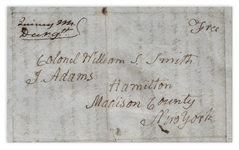 Quincy
Free
Colonel William S. Smith
J. Adams
Hamilton
Madison County
New York